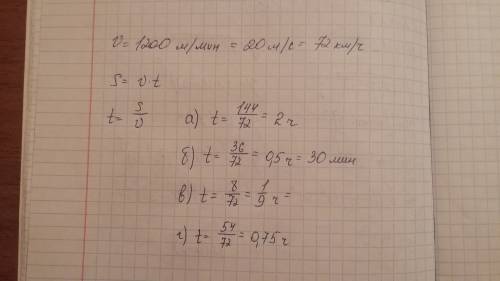 v = 1200 м/мин = 20 м/с = 72 км/ч
S = v·t
t = S/v а) t = 144/72 = 2 ч
б) t = 36/72 = 0,5 ч = 30 мин
в) t = 8/72 = 1/9 ч =
г) t = 54/72 = 0,75 ч